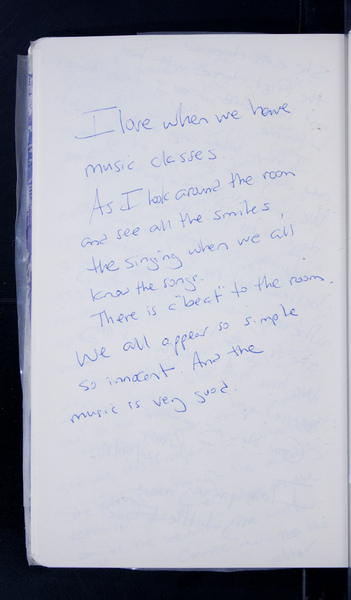 I love when we have
music classes.
As I look around the room
and see all the smiles,
the singing when we all
know the songs.
There is a "beat" to the room.
We all appear so simple
so innocent. And the
music is very good.